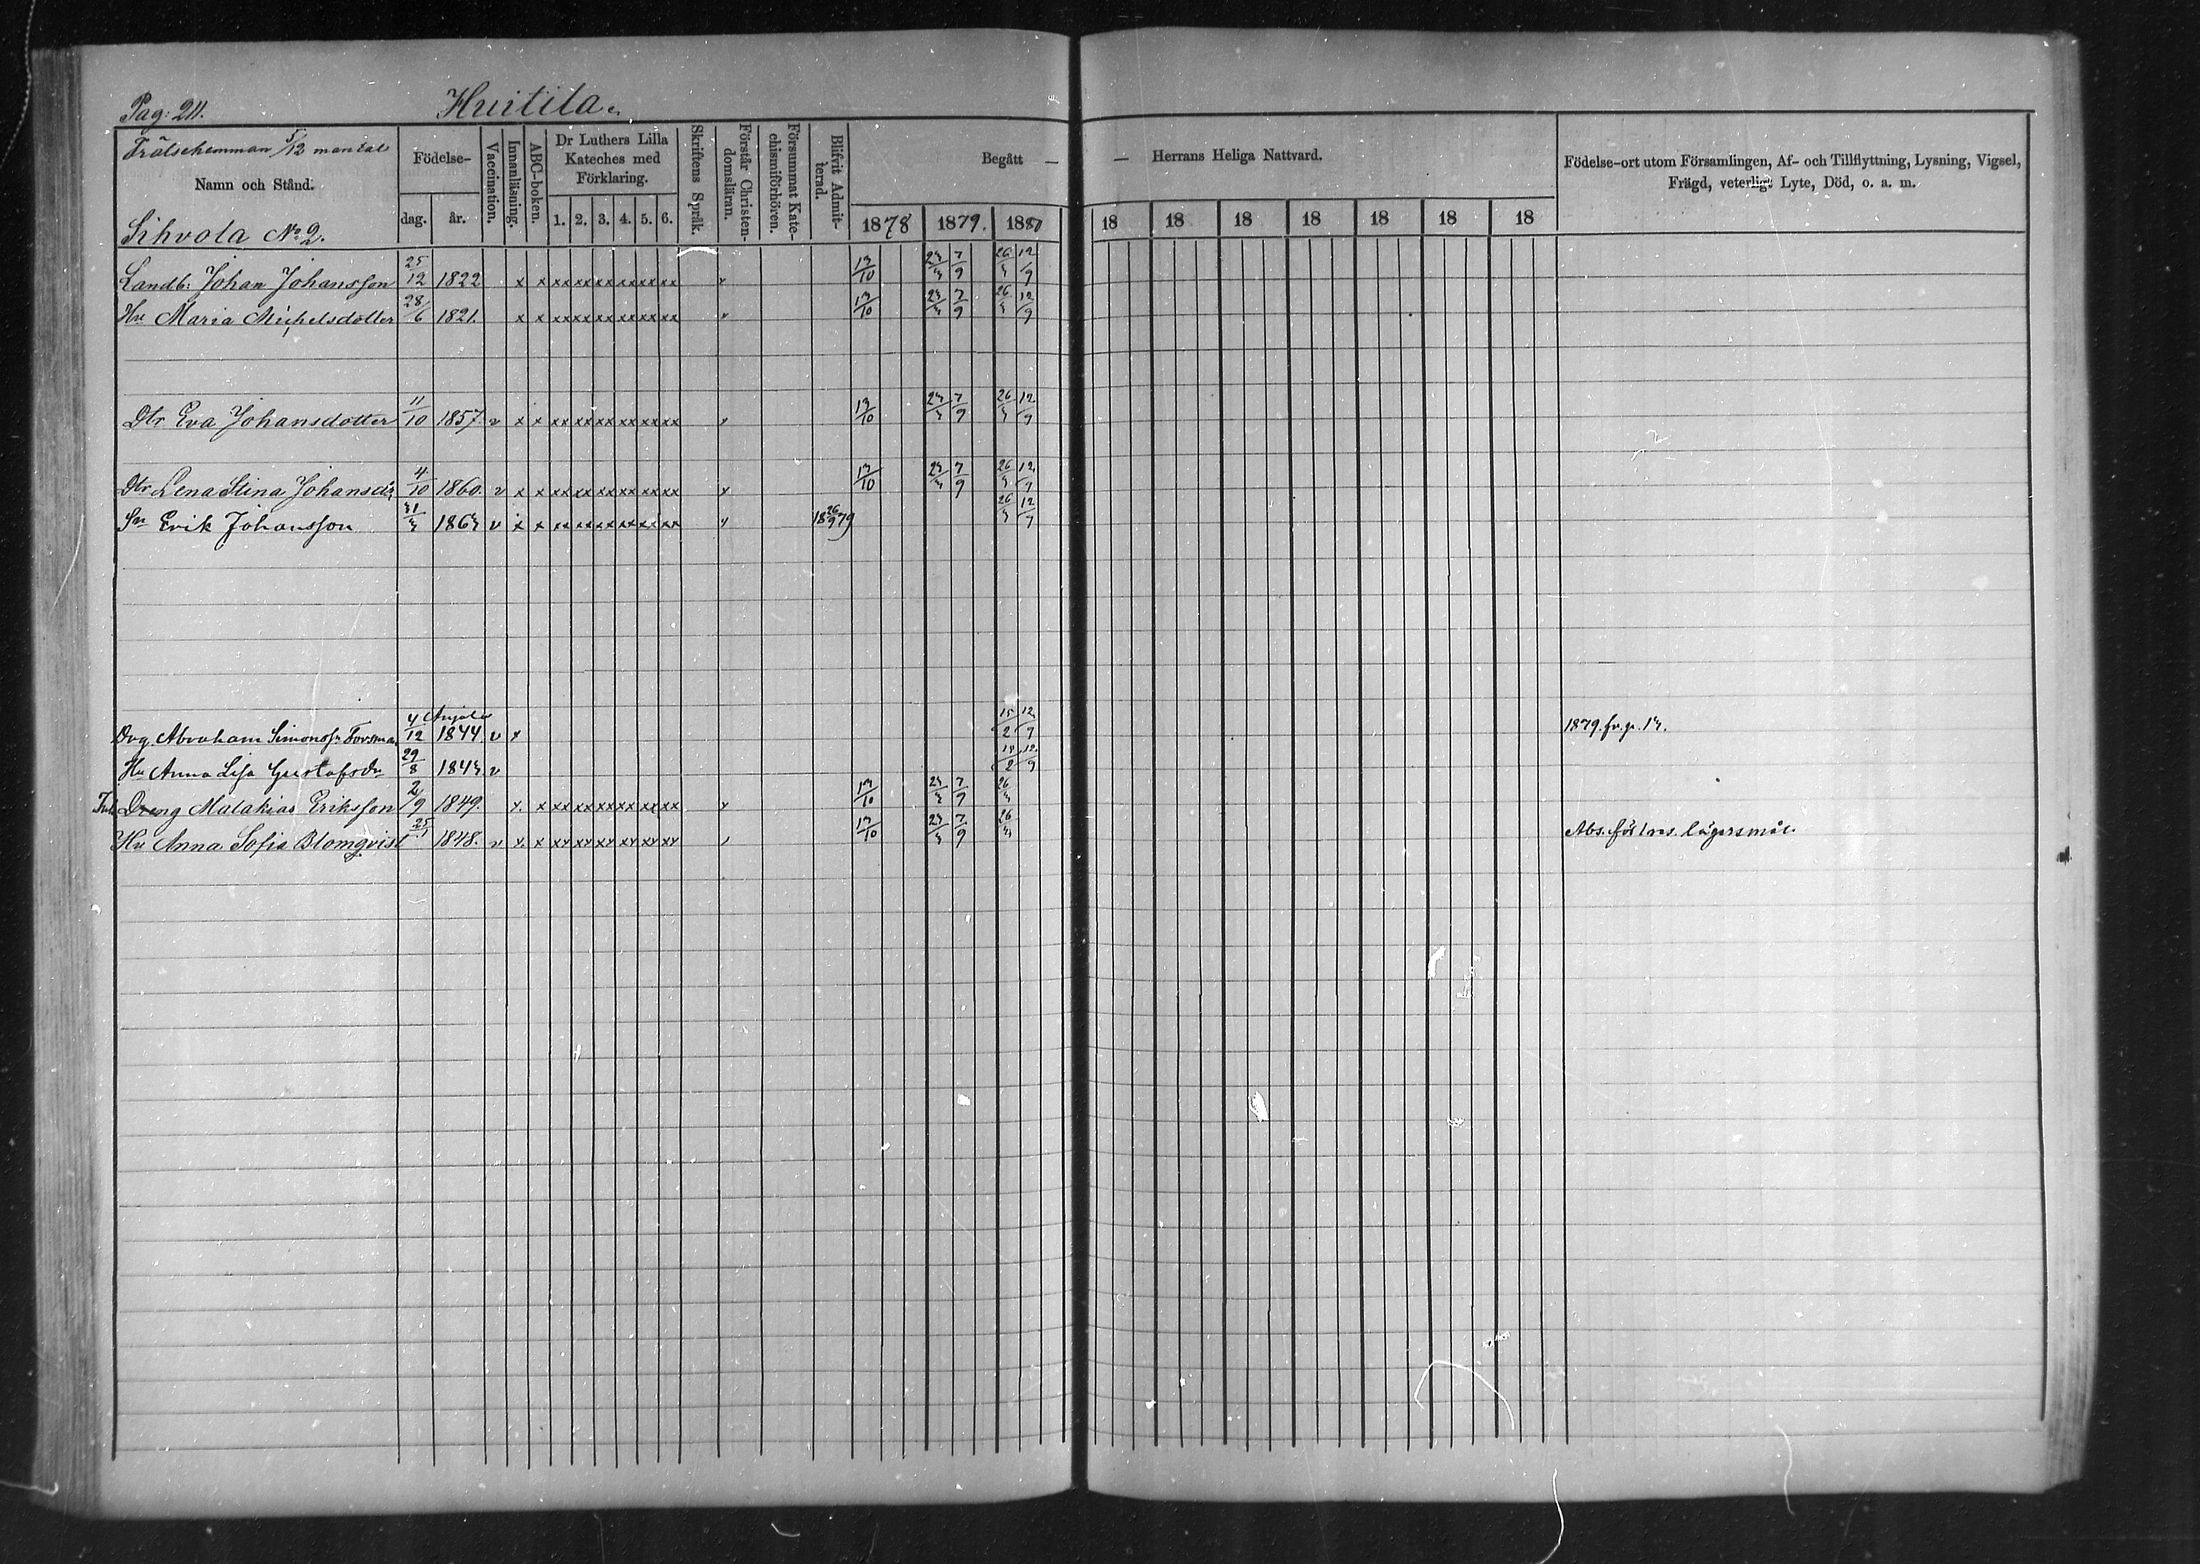 Pag: 211.
Huitila.
Frälsehemman 5/12 mantal
Namn och Stånd.
Sihvola No 2.
Födelse-
dag. år.
Vaccination.
Innanläsning.
ABC-boken.
Dr Luthers Lilla
Kateches med
Förklaring.
1. 2. 3. 4. 5. 6.
Skriftens Språk.
Förstår Christen-
domsläran.
Försummat Kate-
chismiförhören.
Blifvit Admit-
terad.
Begått — — Herrans Heliga Nattvard.
1878 1879. 1880 18 18 18 18 18 18 18
Födelse-ort utom Församlingen, Af- och Tillflyttning, Lysning, Vigsel,
Frägd, veterligt Lyte, Död, o. a. m.
Landb: Johan Johansson 25/12 1822 x x xx xx xx xx xx xx v 13/10 23/3 7/9 26/3 12/9
Hu Maria Michelsdotter 28/6 1821. x x xx xx xx xx xx xx v 13/10 23/3 7/9 26/3 12/9
Dtr Eva Johansdotter 11/10 1857. v x x xx xx xx xx xx xx v 13/10 23/3 7/9 26/3 12/9
Dtr Lena Stina Johansdr 4/10 1860. v x x xx xx xx xx xx xx v 13/10 23/3 7/9 26/3 12/9
Sn Erik Johansson 31/3 1863 v x x xx xx xx xx xx xx v 18 26/9 79 26/3 12/9
Drg. Abraham Simonss Forsman 4/12 Anjala 1844 v x 15/2 12/9 1879. fr. p. 13.
Hu Anna Lisa Gustafsdr 29/8 1843 v 12/9
Dreng Malakias Eriksson 2/9 1849. x. x xx xx xx xx xx xx v 13/10 23/3 7/9 26/3
Hu Anna Sofia Blomqvist 25/1 1848. v x. x xx xx xx xx xx xx 13/10 23/3 7/9 26/3 Abs. för lägersmål.